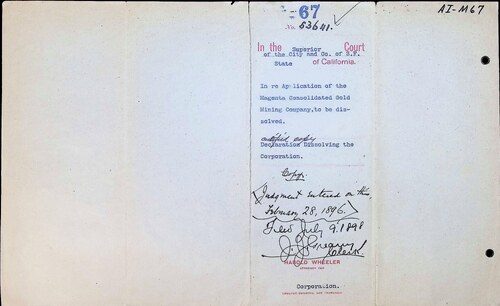 AI-M67
67
No. 53641.
In the Superior Court
of the City and Co. of S.F.
State of California.
In re Application of the
Magenta Consolidated Gold
Mining Company, to be dis-
solved.
certified copy
Declaration Dissolving the
Corporation.
Copy.
Judgment entered on this
February 28, 1896.
Filed July 9. 1898
Clerk.
HAROLD WHEELER
Corporation.